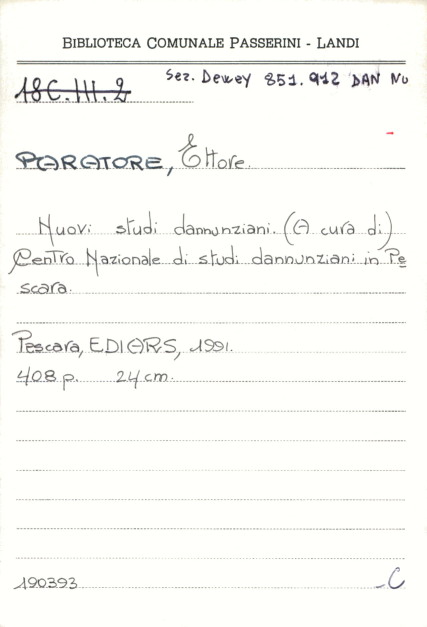 BIBLIOTECA COMUNALE PASSERINI - LANDI
Sez. Dewey 851.912 DAN NU
18C.III.2
PARATORE, Ettore.
Nuovi studi dannunziani. (A cura di)
Centro Nazionale di studi dannunziani in Pe
scara.
Pescara, EDIARS, 1991.
408 p. 24 cm.
190393
C